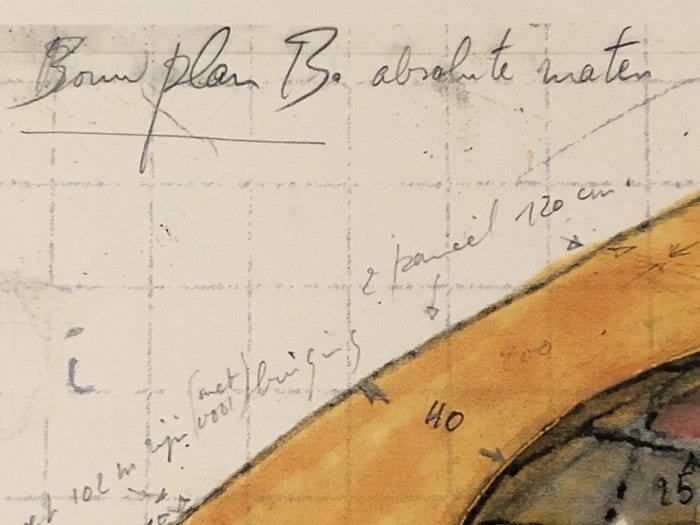 Bouw plan B. absolute maten
2 paneel 120 cm
(met
voor) buiging
102 m zijn
40
25